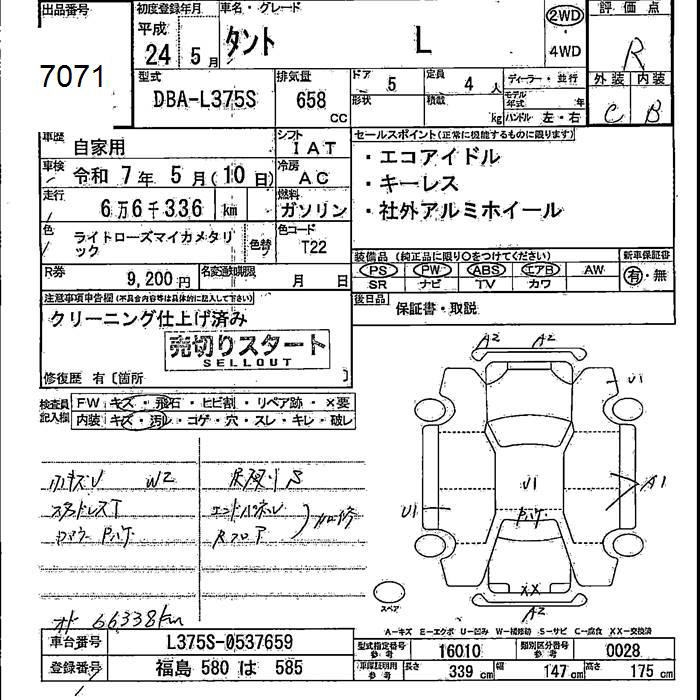 出品番号
7071
初度登録年月
平成
24 5月
車名・グレード
タント L
2WD
・
4WD
評価点
R
型式
DBA-L375S
排気量
658 CC
ドア 5
定員 4人
ディーラー・並行
形状
積載 kg
モデル年式 年
ハンドル 左・右
外装 内装
C B
車歴
自家用
シフト
IAT
セールスポイント(正常に機能するものに限ります)
・エコアイドル
・キーレス
・社外アルミホイール
車検
令和 7年 5月(10日)
冷房
AC
走行
6万6千336 km
燃料
ガソリン
色
ライトローズマイカメタリ
ック
色替
色コード
T22
装備品 (純正品に限り○をつけてください)
PS PW ABS エアB AW
SR ナビ TV カワ
新車保証書
有・無
R券
9,200円
名変通知期限
月 日
後日品
保証書・取説
注意事項申告欄(不具合内容等は具体的に記入して下さい)
クリーニング仕上げ済み
売切りスタート
SELLOUT
修復歴 有〔箇所 〕
検査員
記入欄
FW キズ・飛石・ヒビ割・リペア跡・×要
内装 キズ・汚レ・コゲ・穴・スレ・キレ・破レ
W2
S
66338km
A2 A2
U1
U1
A1
U1
XX
A2
スペア
A-キズ E-エクボ U-凹み W-補修跡 S-サビ C-腐食 XX-交換済
車台番号
L375S-0537659
型式指定番号
参考
16010
類別区分番号
参考
0028
登録番号
福島 580 は 585
車庫証明用
参考
長さ 339 cm
幅 147 cm
高さ 175 cm